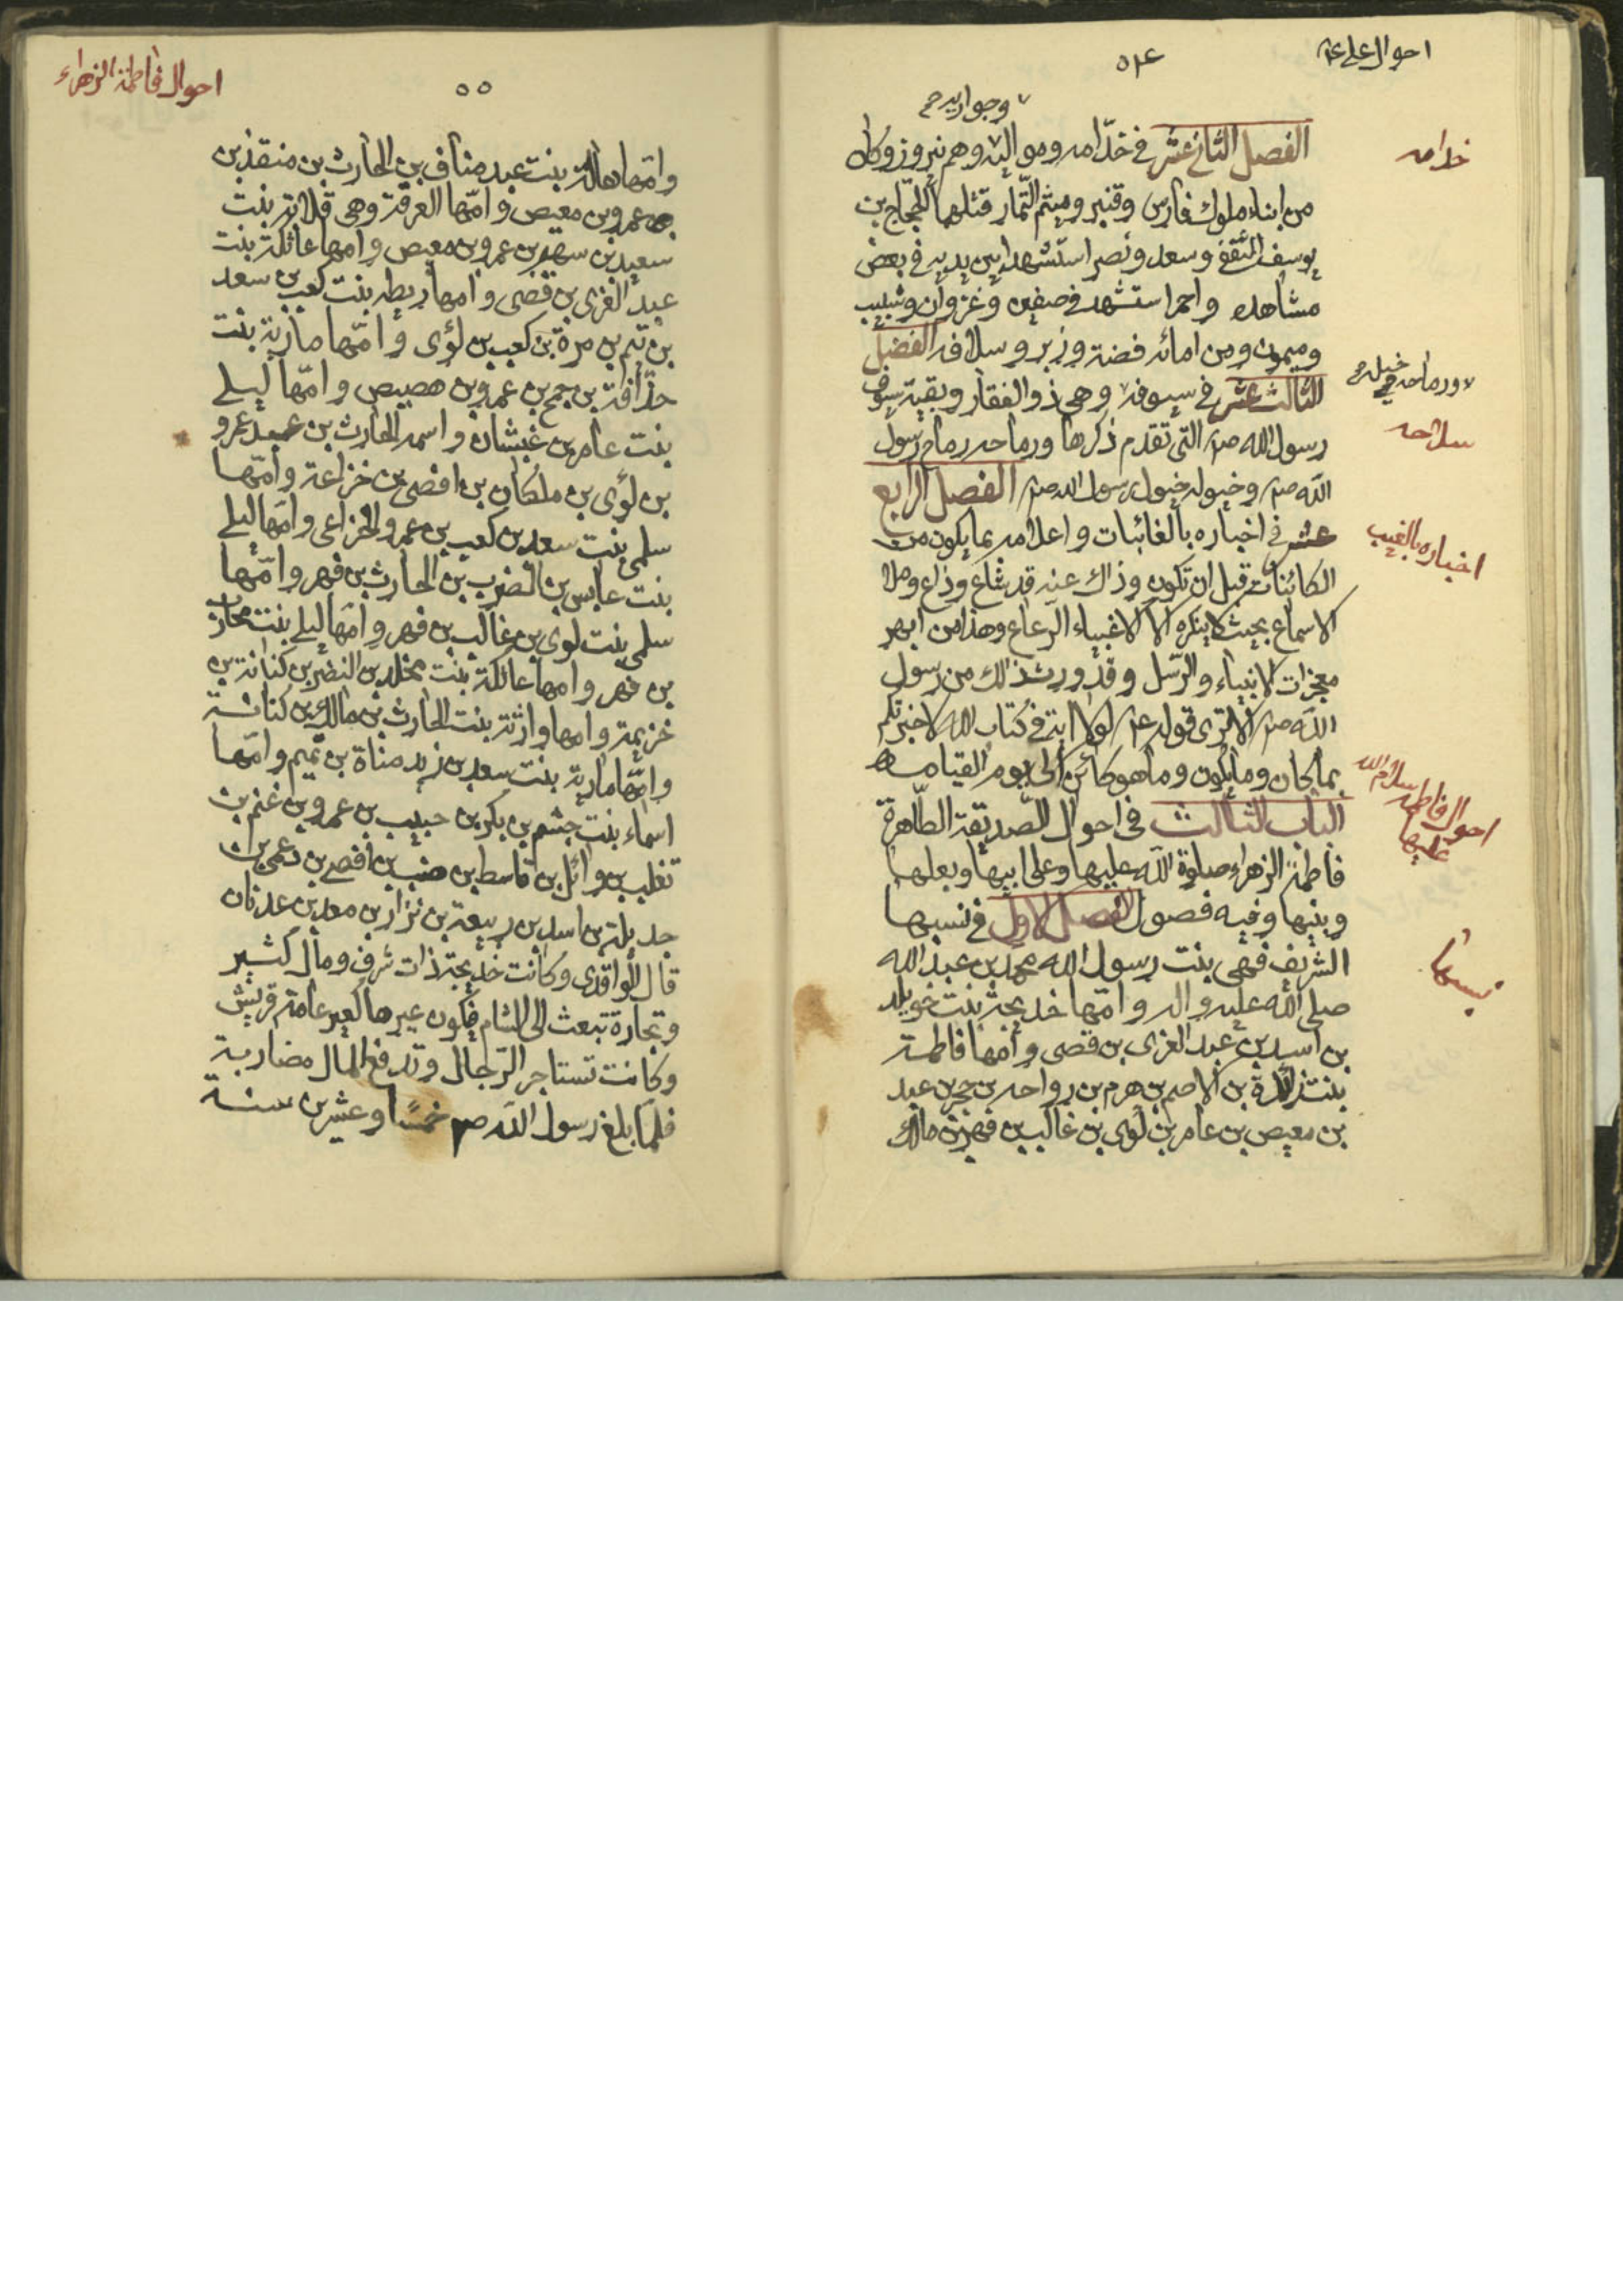 احوال علي ع
٥٤
وجواريه
خدامه
الفصل الثاني عشر في خدّامه ومواليه وهم نيروز وكان
من ابناء ملوك فارس وقنبر وميثم التّمار قتلهما الحجّاج بن
يوسف الثقفي وسعد ونصر استشهدا بين يديه في بعض
مشاهده واحمر استشهد في صفين وغزوان وشبيب
وميمون ومن امائه فضة وزبر وسلافه الفصل
ورماحه خيله
الثالث عشر في سيوفه وهي ذو الفقار وبقية سيوف
سلاحه
رسول الله ص التي تقدم ذكرها ورماحه رماح رسول
الله ص وخيوله خيول رسول الله ص الفصل الرابع
اخباره بالغيب
عشر في اخباره بالغائبات واعلامه بما يكون من
الكائنات قبل ان تكون وذاك عنه قد شاع وذاع وملا
الاسماع بحيث لا ينكره الا الاغبياء الرعاع وهذا من ابهر
معجزات الانبياء والرّسل وقد ورث ذلك من رسول
الله ص الا ترى قوله ع لولا اية في كتاب الله لاخبرتكم
بما كان وما يكون وما هو كائن الى يوم القيامة
احوال فاطمة سلام الله عليها
الباب الثالث في احوال الصّديقة الطّاهرة
فاطمة الزهراء صلوة الله عليها وعلى ابيها وبعلها
وبنيها وفيه فصول الفصل الاول في نسبها
نسبها
الشريف فهي بنت رسول الله محمد بن عبد الله
صلى الله عليه واله وامّها خديجة بنت خويلد
بن اسد بن عبد العزى بن قصى وامّها فاطمة
بنت زائدة بن الاصم بن هرم بن رواحه بن حجر بن عبد
بن معيص بن عامر بن لوى بن غالب بن فهر بن مالك
احوال فاطمة الزهراء
٥٥
وامّها هالة بنت عبد مناف بن الحارث بن منقذ بن
عمرو بن معيص وامّها العرقة وهي قلابة بنت
سعيد بن سهم بن عمرو بن معيص وامها عاتكة بنت
عبد العزى بن قصى وامها ريطه بنت كعب بن سعد
بن تيم بن مرة بن كعب بن لؤى وامّها مارية بنت
حذافة بن جمح بن عمرو بن هصيص وامّها ليلى
بنت عامر بن غبشان واسمه الحارث بن عبد عمرو
بن لؤى بن ملكان بن افصى من خزاعة وامّها
سلمى بنت سعد بن كعب بن عمرو الخزاعى وامّها ليلى
بنت عابس بن الضرب بن الحارث بن فهر وامّها
سلمى بنت لوى بن غالب بن فهر وامّها ليلى بنت محارب
بن فهر وامها عاتكة بنت مخلد بن النضر بن كنانة بن
خزيمة وامها وارثة بنت الحارث بن مالك بن كنانة
وامّها مارية بنت سعد بن زيد مناة بن تميم وامّها
اسماء بنت جشم بن بكر بن حبيب بن عمرو بن غنم بن
تغلب بن وائل بن قاسط بن هنب بن افصى بن دعمى بن
جديلة بن اسد بن ربيعة بن نزار بن معد بن عدنان
قال الواقدى وكانت خديجة ذات شرف ومال كثير
وتجارة تبعث الى الشام فيكون عيرها كعير عامة قريش
وكانت تستاجر الرّجال وتدفع المال مضاربة
فلمّا بلغ رسول الله ص خمسًا وعشرين سنة